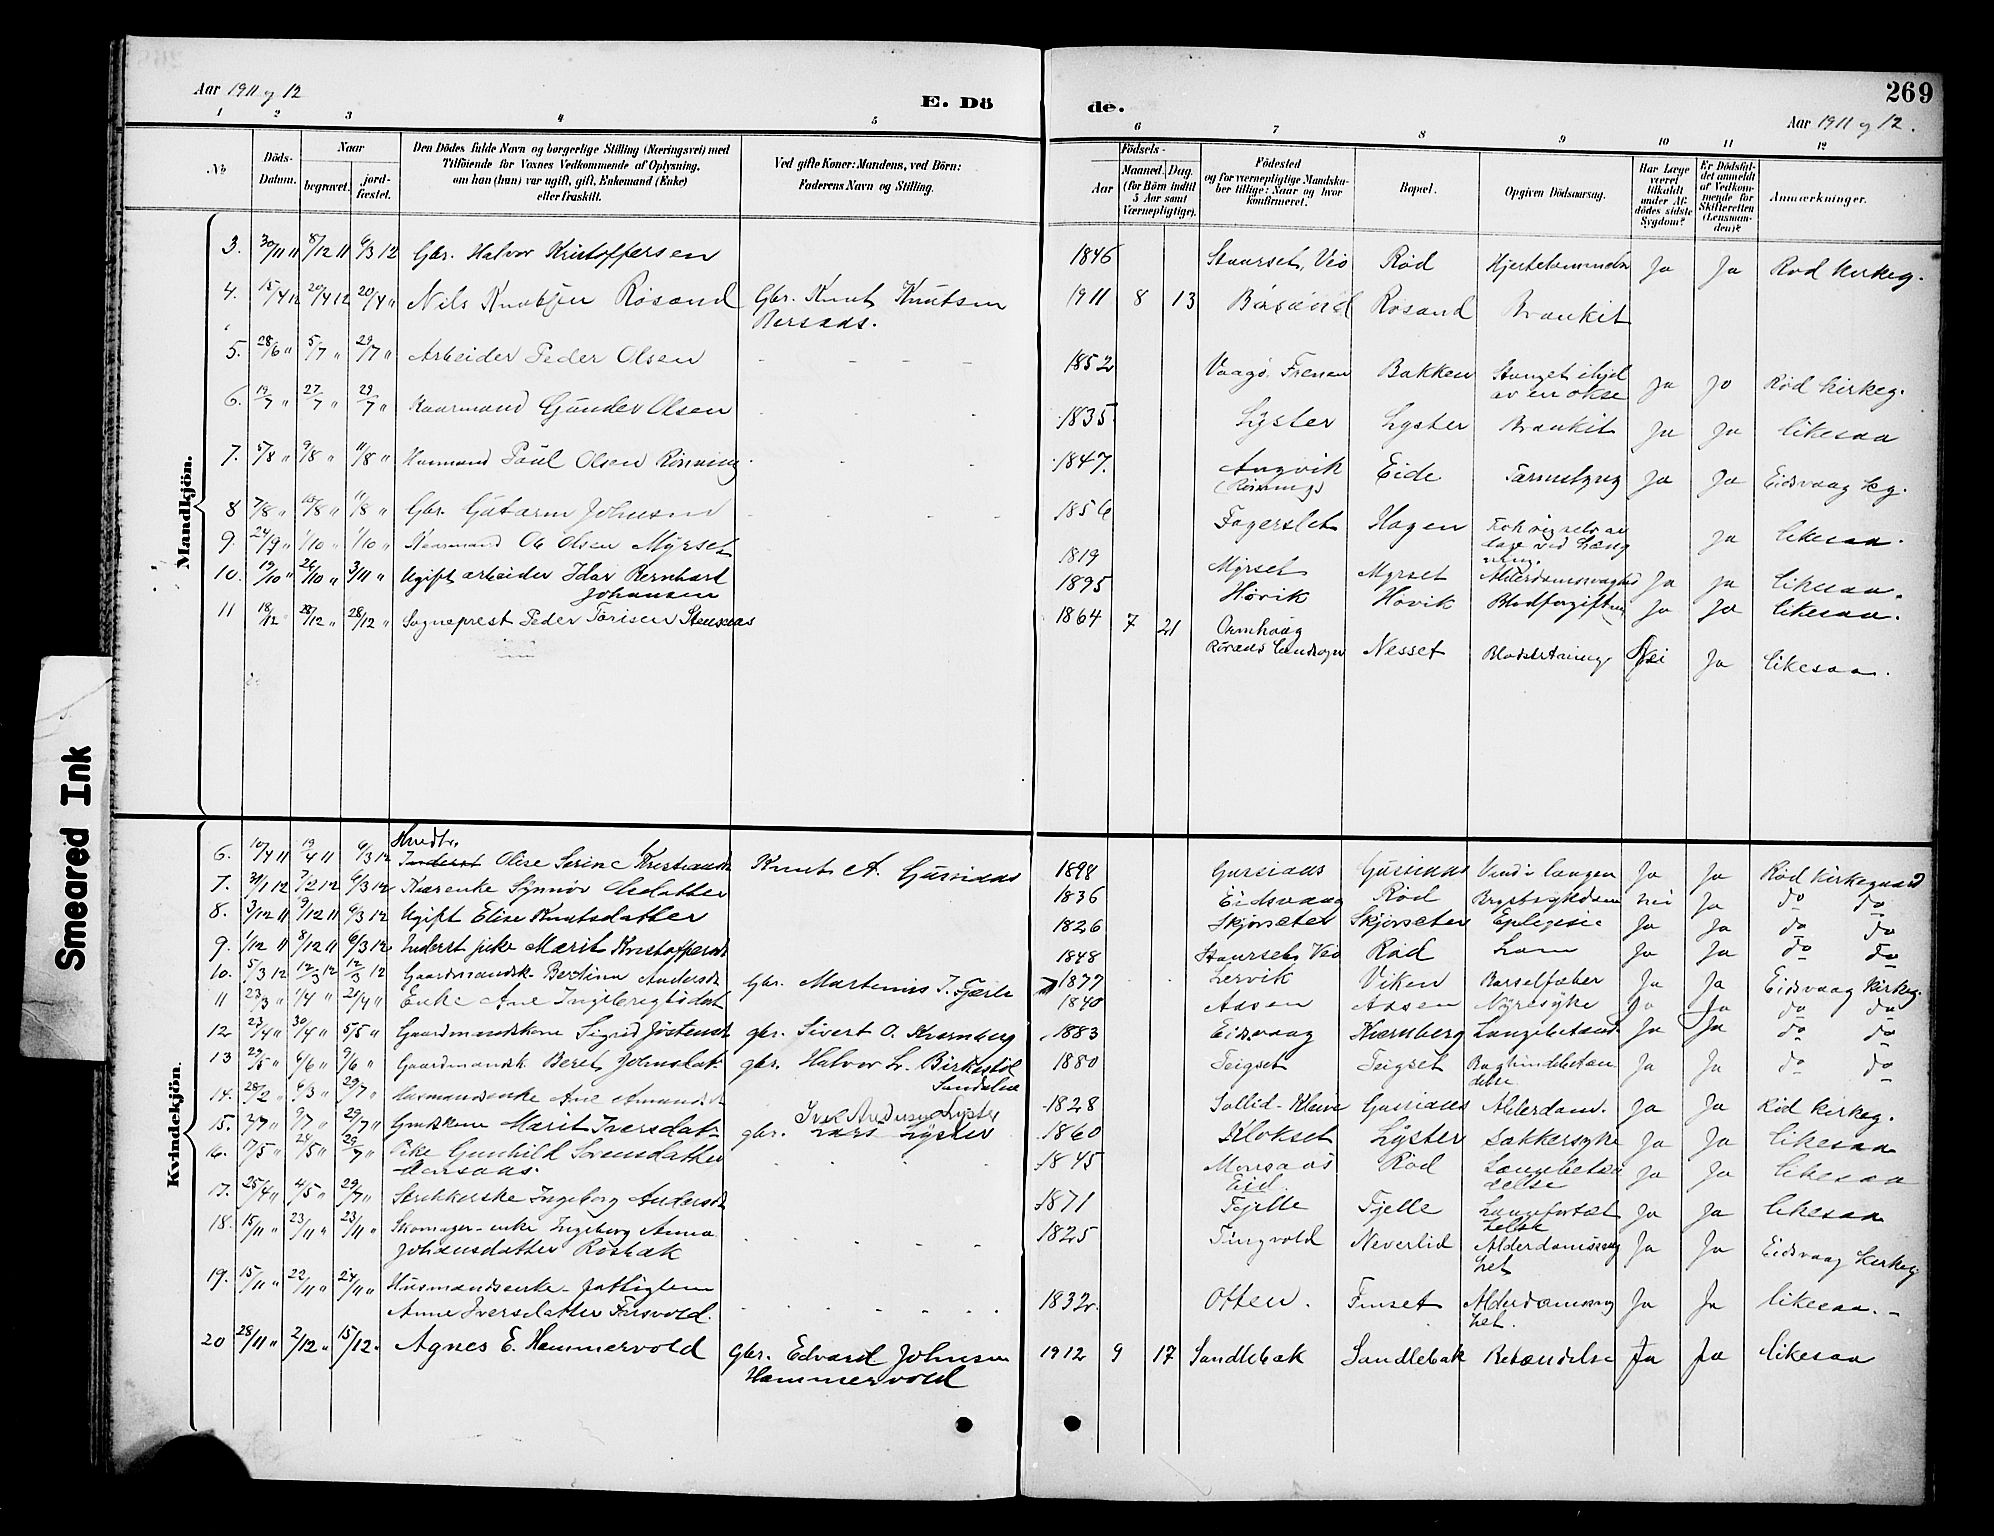 Aar 1911 og 12
E. Dö
de.
269
Aar 1911 og 12.
1 2 3 4 5 6 7 8 9 10 11 12
No
Döds-Datum.
Naar
begravet.
jord-fæstet.
Den Dödes fulde Navn og borgerlige Stilling (Næringsvei) med
Tilföiende for Voxnes Vedkommende af Oplysning,
om han (hun) var ugift, gift, Enkemand (Enke)
eller fraskilt.
Ved gifte Koner: Mandens, ved Börn:
Faderens Navn og Stilling.
Födsels-
Aar
Maaned. Dag.
(for Börn indtil
5 Aar samt
Værnepligtige).
Födested
og for værnepligtige Mandska-
ber tillige: Naar og hvor
konfirmeret.
Bopæl.
Opgiven Dödsaarsag.
Har Læge
været
tilkaldt
under Af-
dödes sidste
Sygdom?
Er Dödsfal-
det anmeldt
af Vedkom-
mende for
Skifteretten
(Lensman-
den)?
Anmærkninger.
Mandkjön.
3. 30/11 11 8/12 11 6/3 12 Gbr. Halvor Kristoffersen 1846 Staurset, Veö Rød Ja Ja Rød Kirkeg.
4. 15/4 12 20/4 12 20/4 " Nils Rösand Gbr. Knut Knutsen 1911 8 13 Rösand Bronkit
5. 28/6 " 5/7 " 29/7 " Arbeider Peder Olsen 1852 Vaagö. Frenen Bakken Stanget ihjel
av en okse Ja Ja Rød Kirkeg.
6. 19/7 " 27/7 " 29/7 " Kaarmand Gunder Olsen 1835 Lyster Lyster Bronkit Ja Ja likesaa
7. 5/8 " 9/8 " 11/8 " Husmand Paul Olsen Rönning 1847. Angvik
(Rönning) Eide Ja Ja Eidsvaag kg.
8 7/8 " 10/8 " 11/8 " Gbr. Gutorm Johnsen 1856 Fagerslet Hagen Ja likesaa.
9. 24/9 " 1/10 " 1/10 " Kaarmand Ole Olsen Myrset 1819 Myrset Myrset Alderdomssvaghed Ja Ja likesaa.
10. 19/10 " 26/10 " 3/11 " Ugift arbeider Idar Bernhard
Johansen 1895 Hövik Hövik Blodforgiftning Ja Ja likesaa.
11 18/12 28/12 " 28/12 " Sogneprest Peder Stensaas 1864 7 21
Röraas Landsogn Nesset Nei Ja likesaa.
Kvindekjön.
6. 10/4 11 19/4 11 6/3 12 Olise Serine Kristiansd. Knut A. Gussiaas 1898 Gussiaas Gussiaas Vand i lungen Ja Ja Rød Kirkegaard
7. 31/1 12 7/2 12 6/3 12 Kaarenke Synnöv 1836 Eidsvaag Rød Brystsygdom nei Ja do do
8. 3/12 11 9/12 11 6/3 12 Ugift Elise Knutsdatter 1826 Skjørseter Skjørseter Eplepsie Ja Ja do do
9. 1/12 11 8/12 11 6/3 12 Inderst pike Marit Kristoffersd. 1848 Staurset, Veö Rød Lam Ja Ja do do
10. 5/3 12 12/3 12 12/3 12 Gaardmandsk. Bertine Andersd. Gbr. Martinus J. Fjærli 1877 Lervik Viken Barselfeber Ja Ja Eidsvaag Kirkeg.
11 23/3 " 1/4 " 21/4 " Enke Ane Ingebrigtsdat. 1840 Aasen Aasen Nyresyke Ja Ja do do
12 23/4 " 30/4 " 5/5 " Gaardmandskone Sigrid Jöstensd. gbr. Sivert O. Kvernberg 1883 Eidsvaag Kvernberg Lungebetænd. Ja Ja do do
13 29/5 " 6/6 " 9/6 " Gaardmandsk. Beret Johnsdat. gbr. Halvor L. Birkestöl
Sandslia 1880 Teigset Teigset Bughindebetæn
delse Ja Ja do do
14. 28/2 " 6/3 " 29/7 " Husmandsenke Ane Amundsd. 1828 Sollid - Kleive Gussiaas Alderdom. Ja Ja Rød kirkeg.
15. 3/7 " 9/7 " 29/7 " Gmdskone Marit Iversdat. gbr. Lars Lyster
Iver Andersen Lyster 1860 Klokset Lyster Sukkersyke Ja Ja likesaa
16. 17/5 " 28/5 " 29/7 " Pike Gunhild Svensdatter
Monsaas. 1845 Monsaas
Eid. Rød Lungebetæn
delse Ja Ja likesaa
17. 25/4 " 4/5 " 29/7 " Ingeborg Andersd. 1871 Fjelle Fjelle Ja Ja likesaa
18. 15/11 " 23/11 " 23/11 " Skomager-enke Ingeborg Anna
Johansdatter Rösbak 1825 Tingvold Neverlid Alderdomssvag
het Ja Ja Eidsvaag Kirkeg.
19. 15/11 " 22/11 " 24/11 " Husmandsenke fattiglem
Anne Iversdatter 1832. Otten. Finset Alderdomssvag
het. Ja Ja likesaa.
20 28/11 " 2/12 " 15/12. Agnes E. Hammervold Gbr. Edvard Johnsen
Hammervold 1912 9 17 Sandlebak Sandlebak Betændelse Ja Ja likesaa
Smeared Ink